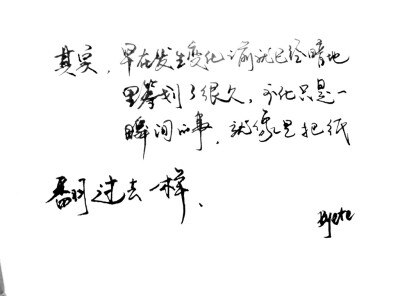 其实，早在发生变化之前就已经暗地
里筹划了很久，变化只是一
瞬间的事，就像是把纸
翻过去一样、